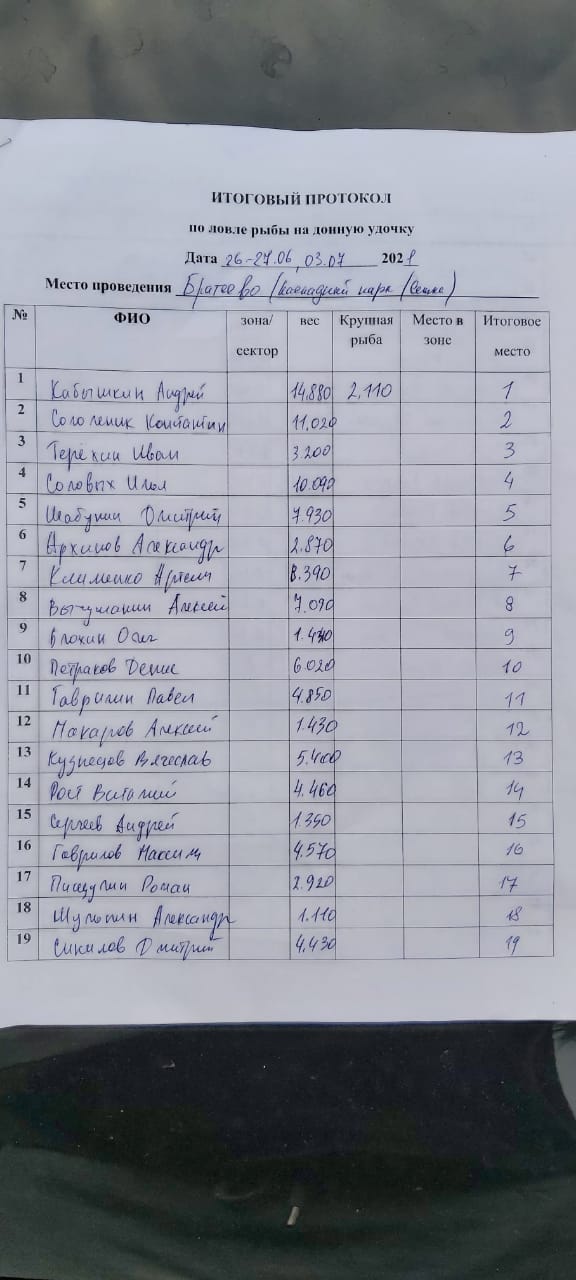 ИТОГОВЫЙ ПРОТОКОЛ
по ловле рыбы на донную удочку
Дата 26-27.06, 03.07 2021
Место проведения Братеево (Каскадный парк /
№ ФИО зона/сектор вес Крупная рыба Место в зоне Итоговое место
1 Кабышкин Андрей 14.880 2,110 1
2 Соголеник Константин 11,020 2
3 Терёхин Иван 3.200 3
4 Соловых Илья 10.090 4
5 Шабунин Дмитрий 7.930 5
6 Архипов Александр 2.870 6
7 Клименко Артем 8.390 7
8 Алексей 7.090 8
9 Блохин Олег 9
10 Петраков Денис 6.020 10
11 Гаврилин Павел 4.850 11
12 Макаров Алексей 1.430 12
13 Кузнецов Вячеслав 5.400 13
14 Рост Виталий 4.460 14
15 Сергеев Андрей 1.350 15
16 Гаврилов Максим 4.570 16
17 Пищулин Роман 2.920 17
18 Шулопин Александр 1.110 18
19 Сикилов Дмитрий 4.430 19